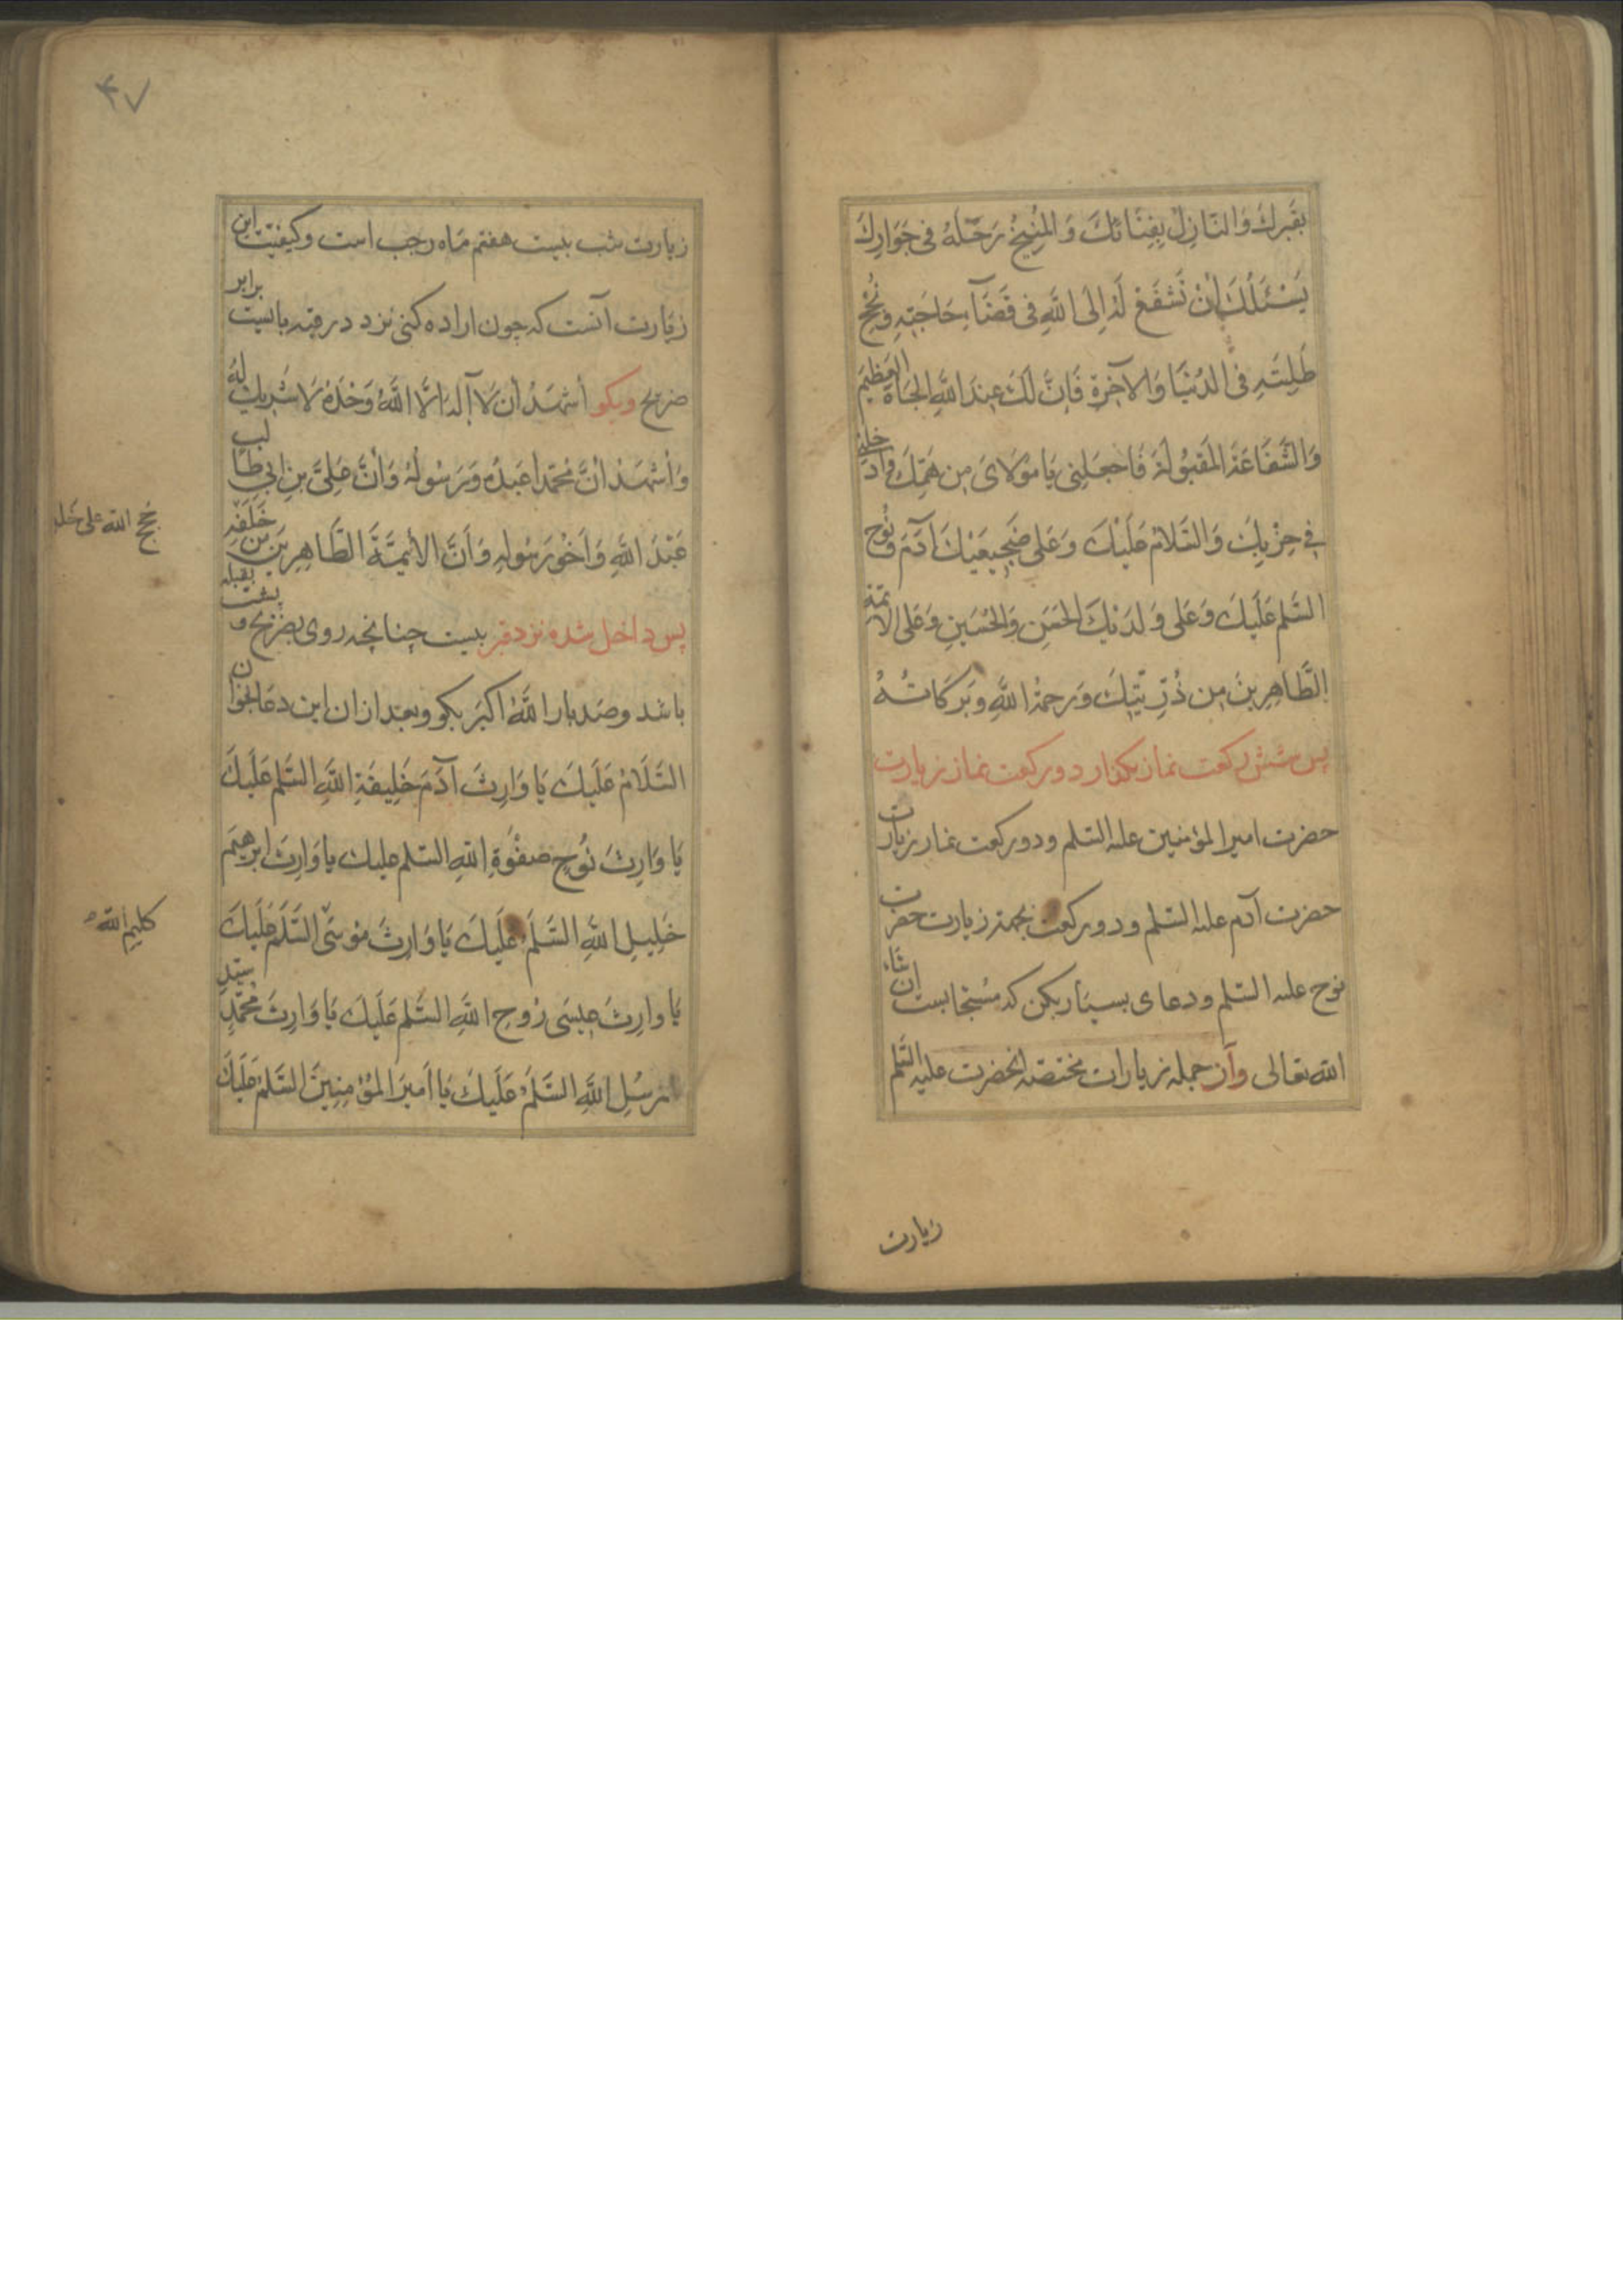 بِقَبرِكَ وَالنَّازِلُ بِفِنَائِكَ وَالْمُنِيخُ رَحْلَهُ فِى جَوَارِكَ
يَسْئَلُكَ أَنْ تَشْفَعَ لَهُ اِلَى اللَّهِ فِى قَضَآءِ حَاجَتِهِ وَنُجْحِ
طَلِبَتِهِ فِى الدُنْيَا وَالآخِرَةِ فَاِنَّ لَكَ عِندَ اللَّهِ الجَاهَ العَظِيمَ
وَالشَّفَاعَةَ المَقبُولَةَ فَاجعَلنِى يَا مَوْلَاىَ مِن هَمِّكَ وَادخِلنِى
فِى حِزْبِكَ وَالسَّلَامُ عَلَيْكَ وَعَلَى ضَجِيعَيْكَ آدَمَ وَنُوحٍ
السَّلم عَلَيكَ وَعَلَى وَلَدَيْكَ الحَسَنِ وَالحُسَيْنِ وَعَلَى الائمَّة
الطَّاهِرِينَ مِن ذُرِّيَّتِكَ وَرَحمَةُ اللَّهِ وَبَرَكَاتُهُ
پس شش ركعت نماز بگذار دو ركعت نماز زيارت
حضرت امير المؤمنين عليه السلم و دو ركعت نماز زيارت
حضرت آدم عليه السلم و دو ركعت بجهة زيارت حضرت
نوح عليه السلم و دعاى بسيار بكن كه مستجابست ان شاء
الله تعالى و از جمله زيارات مختصّه انحضرت عليه السَّلم
زيارت
۴۷
زيارت شب بيست هفتم ماه رجب است و كيفيت اين
زيارت آنست كه چون اراده كنى نزد در قبه بايست برابر
ضريح و بگو أَشهَدُ أن لَا اَلهَ اِلَّا اللَّهُ وَحْدَهُ لَا شَرِيكَ لَهُ
وَأَشْهَدُ أَنَّ مُحَمَّداً عَبدُهُ وَرَسُولُهُ وَأَنَّ عَلِىَّ بنِ ابِي طَالب
عَبْدُ اللَّهِ وَأَخُو رَسُولِهِ وَأَنَّ الأَئِمَّةَ الطَّاهِرِينَ مِن خَلَفِهِ
حُجج الله على خلقه
پس داخل شده نزد قبر بيست چنانچه روى بضريح و پشت بقبله
باشد و صد بار اللَّهُ اكبَر بگو و بعد از ان اين دعا بخوان
السَّلَامُ عَلَيكَ يَا وَارِثَ آدَمَ خَلِيفَةِ اللَّهِ السَّلم عَلَيكَ
يَا وَارِثَ نُوحٍ صَفْوَةِ اللهِ السّلم عليك يا وَارِثَ ابرهِيم
خَلِيلِ اللَّهِ السَّلَمُ عَلَيكَ يَا وَارِثَ مُوسَى السَّلَمُ عَلَيكَ
كليم الله
يَا وارِثَ عِيسَى رُوحِ اللَّهِ السَّلم عَلَيكَ يَا وَارِثَ مُحَمَّدٍ سَيّدِ
رسُلِ اللَّهِ السَّلَمُ عَلَيكَ يَا أَمِيرَ المُؤمِنِينَ السَّلمُ عَلَيكَ